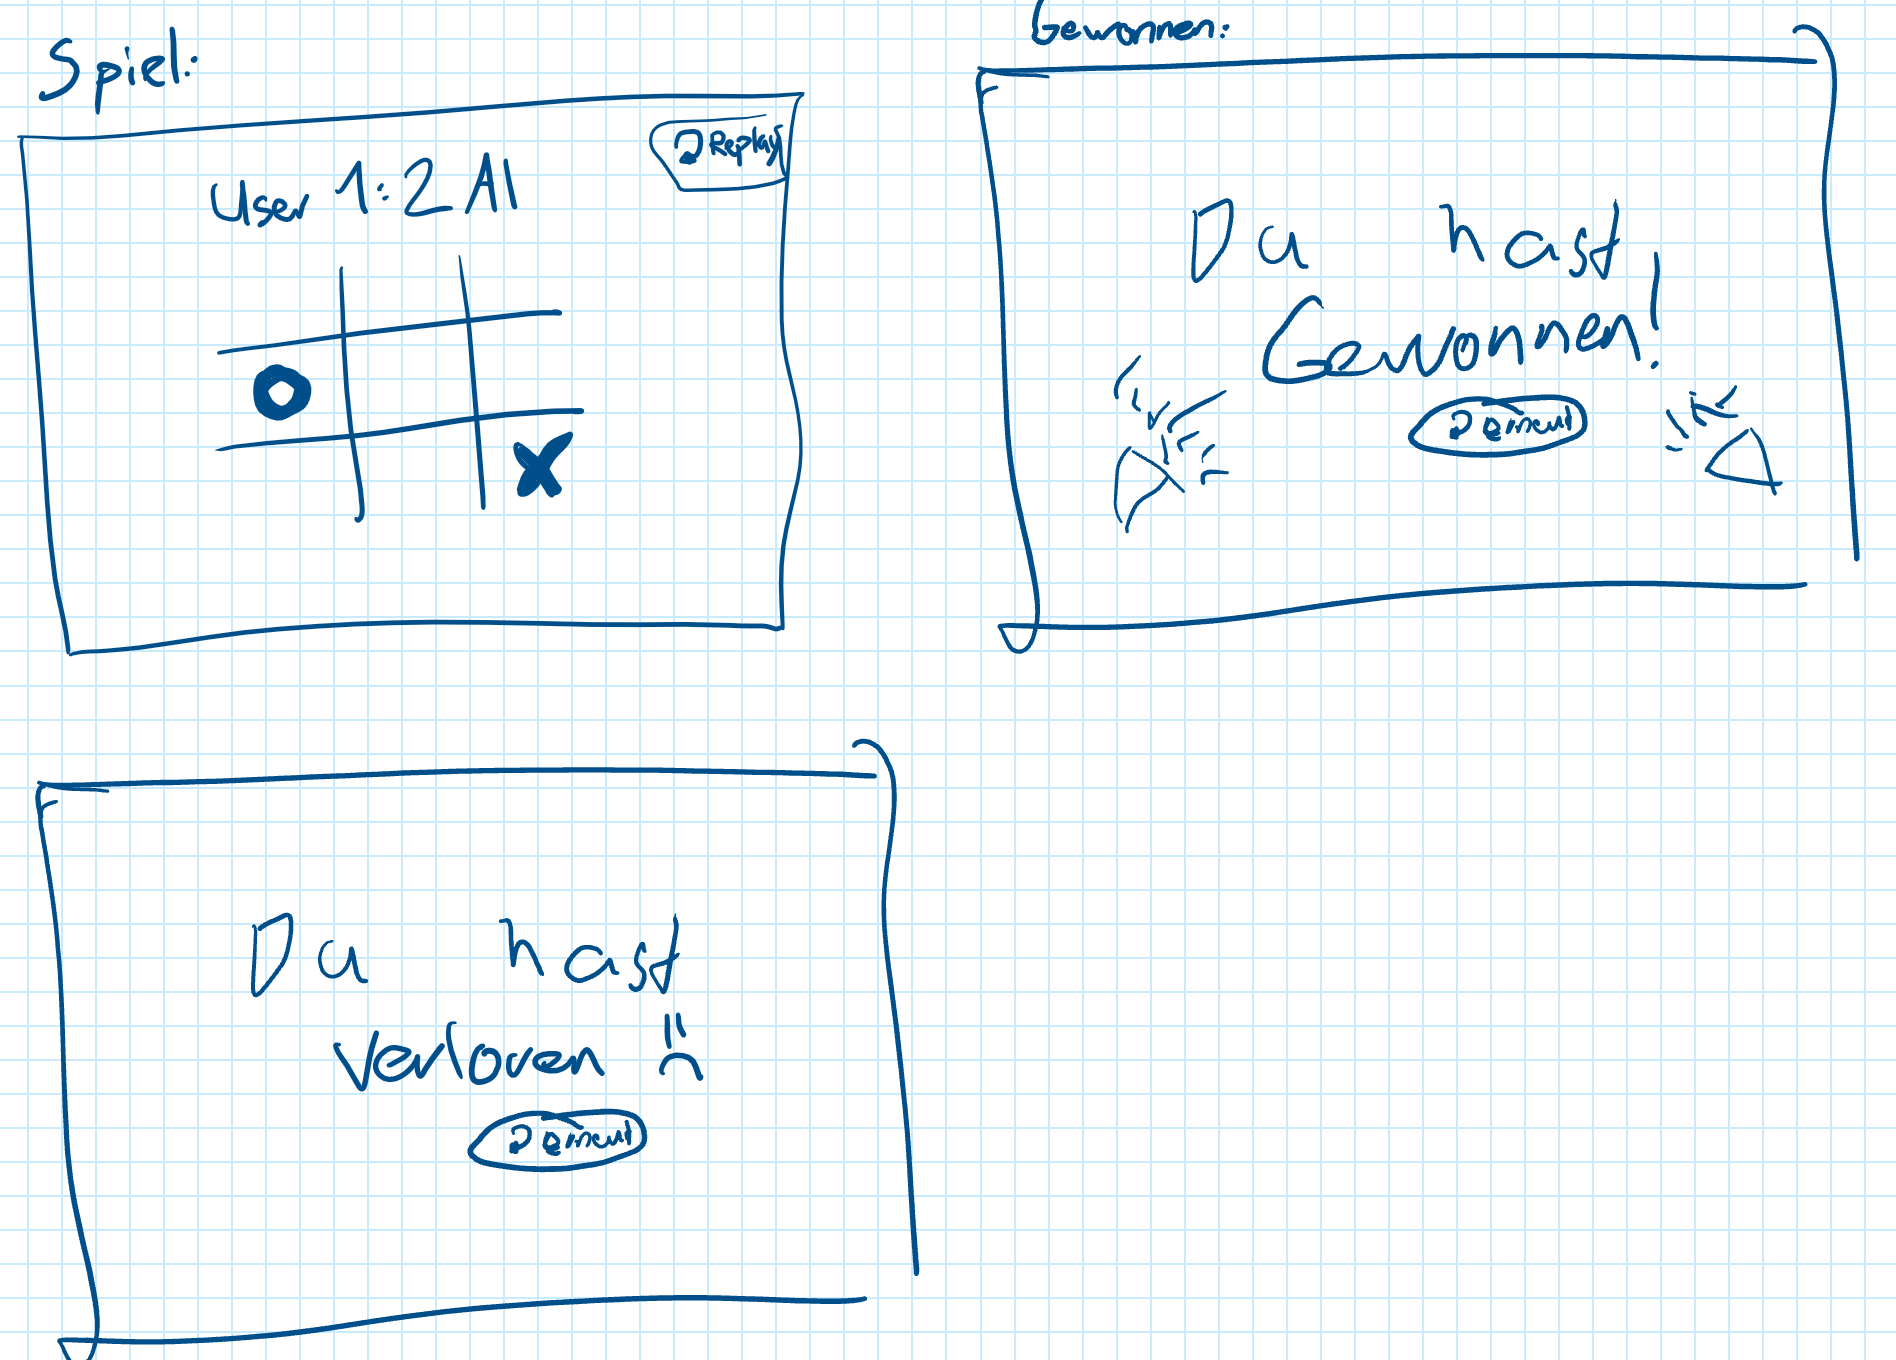 Spiel:
Replay
User 1:2 AI
O
X
Gewonnen:
Du hast
Gewonnen!
erneut
Du hast
verloren :(
erneut